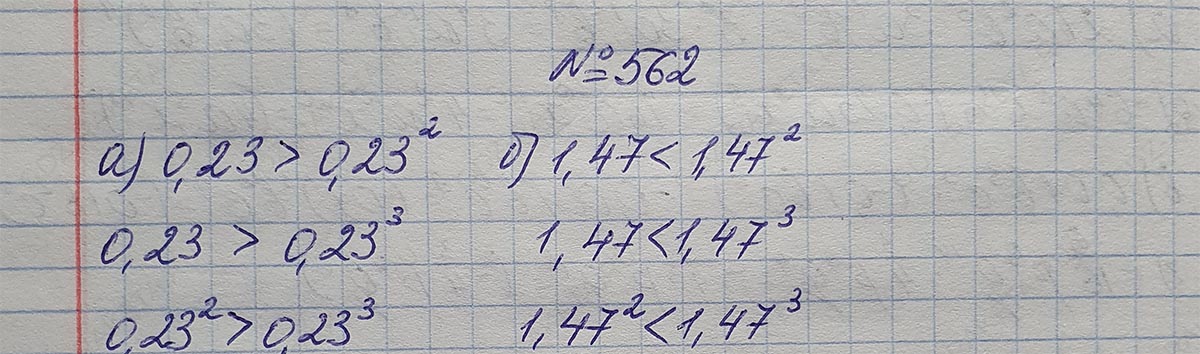 №562
а) 0,23 > 0,23² б) 1,47 < 1,47²
0,23 > 0,23³ 1,47 < 1,47³
0,23² > 0,23³ 1,47² < 1,47³